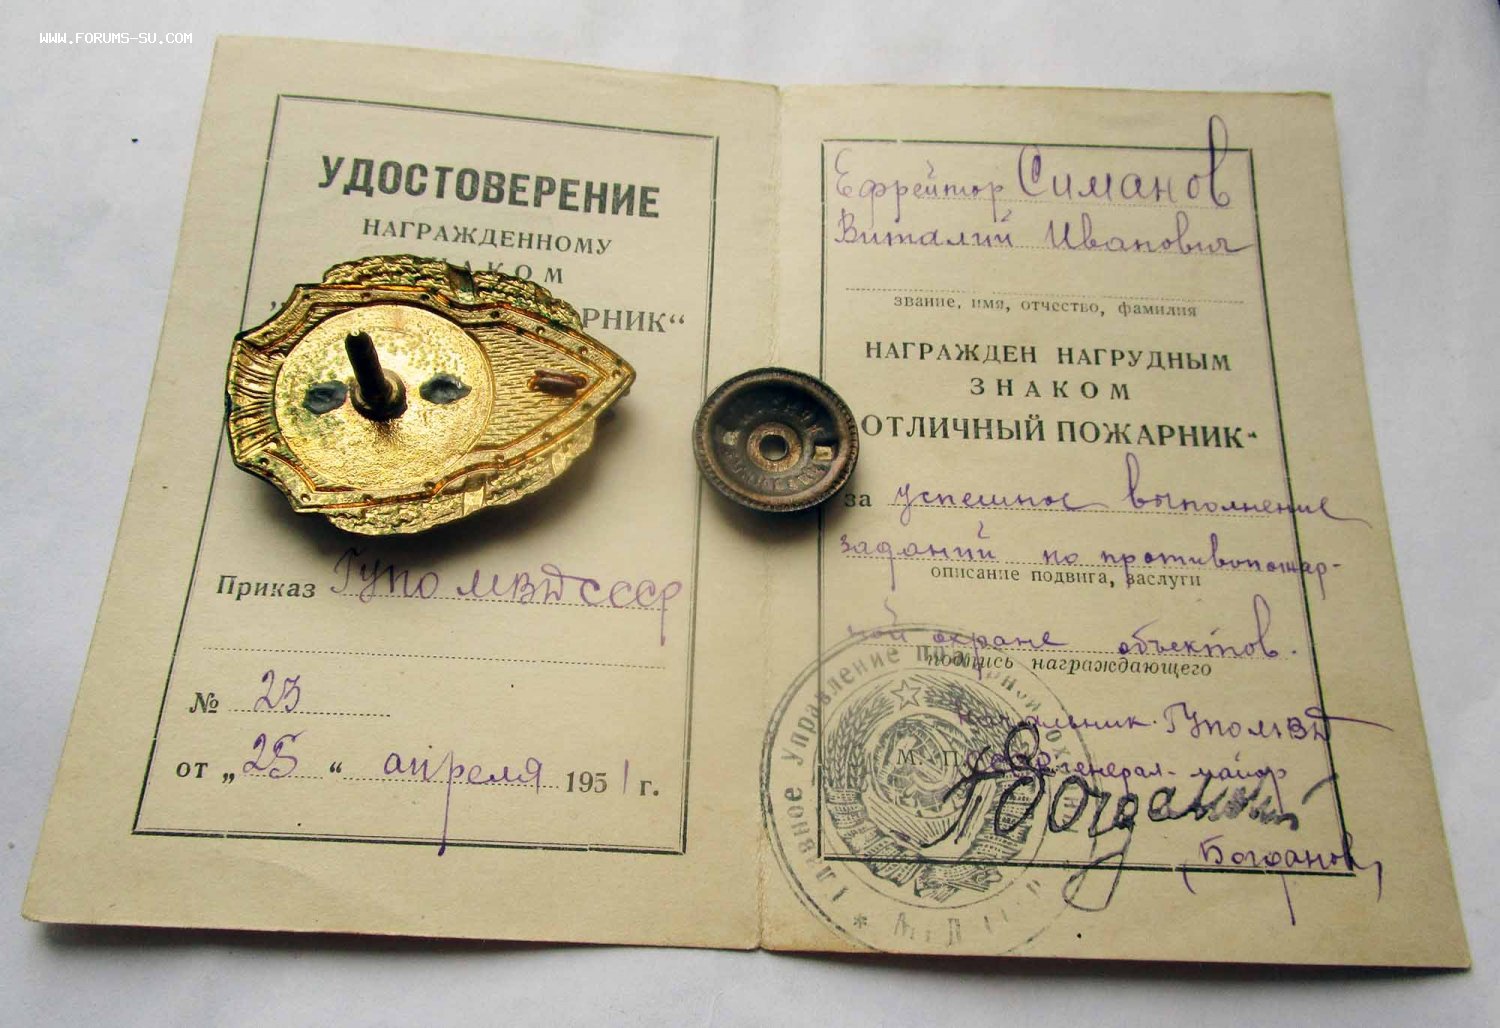 WWW.FORUMS-SU.COM
УДОСТОВЕРЕНИЕ
НАГРАЖДЕННОМУ
ЗНАКОМ
РНИК“
Приказ ГУПО МВД СССР
№ 23
от „25“ апреля 1951 г.
Ефрейтор Симанов
Виталий Иванович
звание, имя, отчество, фамилия
НАГРАЖДЕН НАГРУДНЫМ
ЗНАКОМ
ОТЛИЧНЫЙ ПОЖАРНИК“
за успешное выполнение
заданий по противопожар-
описание подвига, заслуги
ной охране объектов.
подпись награждающего
Начальник ГУПО МВД
М. П. СССР генерал-майор
(Богданов)
Главное Управление пожарной охраны